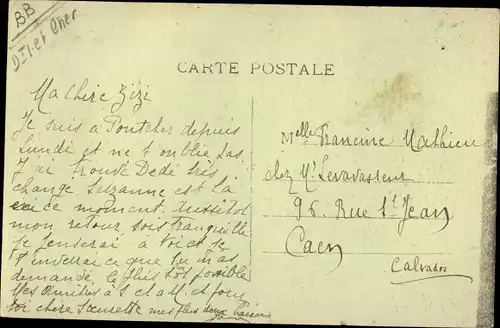 BB
et Cher
CARTE POSTALE
Ma chère Zizi
Je suis à Pontcher depuis
Lundi et ne t'oublie pas
J'ai trouvé Dédé très
changé Suzanne est là
en ce moment. Aussitôt
mon retour sois tranquille
je penserai à toi et je
t'enverrai ce que tu m'as
demandé le plus tôt possible
Mes amitiés à et à M. et pour
toi chère Soeurette mes plus doux baisers
Melle Francine Mathieu
chez Mr Levavasseur
96 Rue St Jean
Caen
Calvados